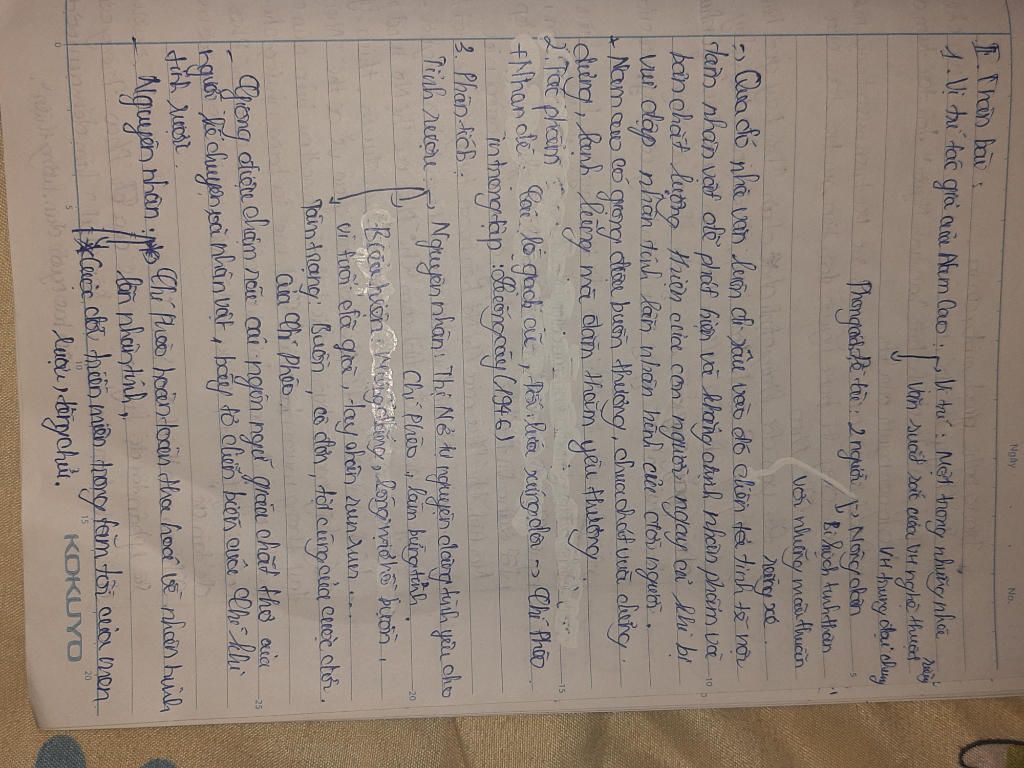 Ngày No.
II. Thân bài:
1. Vị trí tác giả của Nam Cao: → Vị trí: Một trong những nhà
văn xuất sắc của VH nghệ thuật
VH trung đại dùng
đề tài: 2 người → Nông dân
↳ Bi kịch tinh thần
với những mâu thuẫn
xoàng xĩ
→ Qua đó nhà văn luôn đi sâu vào đó chân tả tinh tế nỗi
tâm nhân vật để phát hiện và khẳng định nhân phẩm và
bản chất lương thiện của con người ngay cả khi bị
vùi dập nhân tính lẫn nhân hình của con người.
+ Nam cao có giọng điệu buồn thương, chua chát vừa dửng
dưng, lạnh lùng mà đằm thắm yêu thương
2. Tác phẩm
+ Nhan đề: Cái lò gạch cũ, Đôi lứa xứng đôi → Chí Phèo
in trong tập Luống cày (1946)
3. Phân tích.
Tỉnh rượu → Nguyên nhân: Thị Nở tự nguyện dâng tình yêu cho
Chí Phèo, làm bừng tỉnh
lòng mơ hồ buồn,
vì trời đã già, tay chân run run ...
Tâm trạng: Buồn, cô đơn, tột cùng của cuộc đời
của Chí Phèo
- Giọng điệu chân sâu cái ngôn ngữ giàu chất thơ của
người kể chuyện và nhân vật, bày tỏ diễn biến của Chí khi
tỉnh rượt.
- Nguyên nhân: Chí Phèo hoàn toàn tha hoá về nhân hình
lẫn nhân tính,
Cuộc đời triền miên trong tăm tối của men
rượu, rừng chủ.
KOKUYO
5
10
15
20
25
5
10
15
20